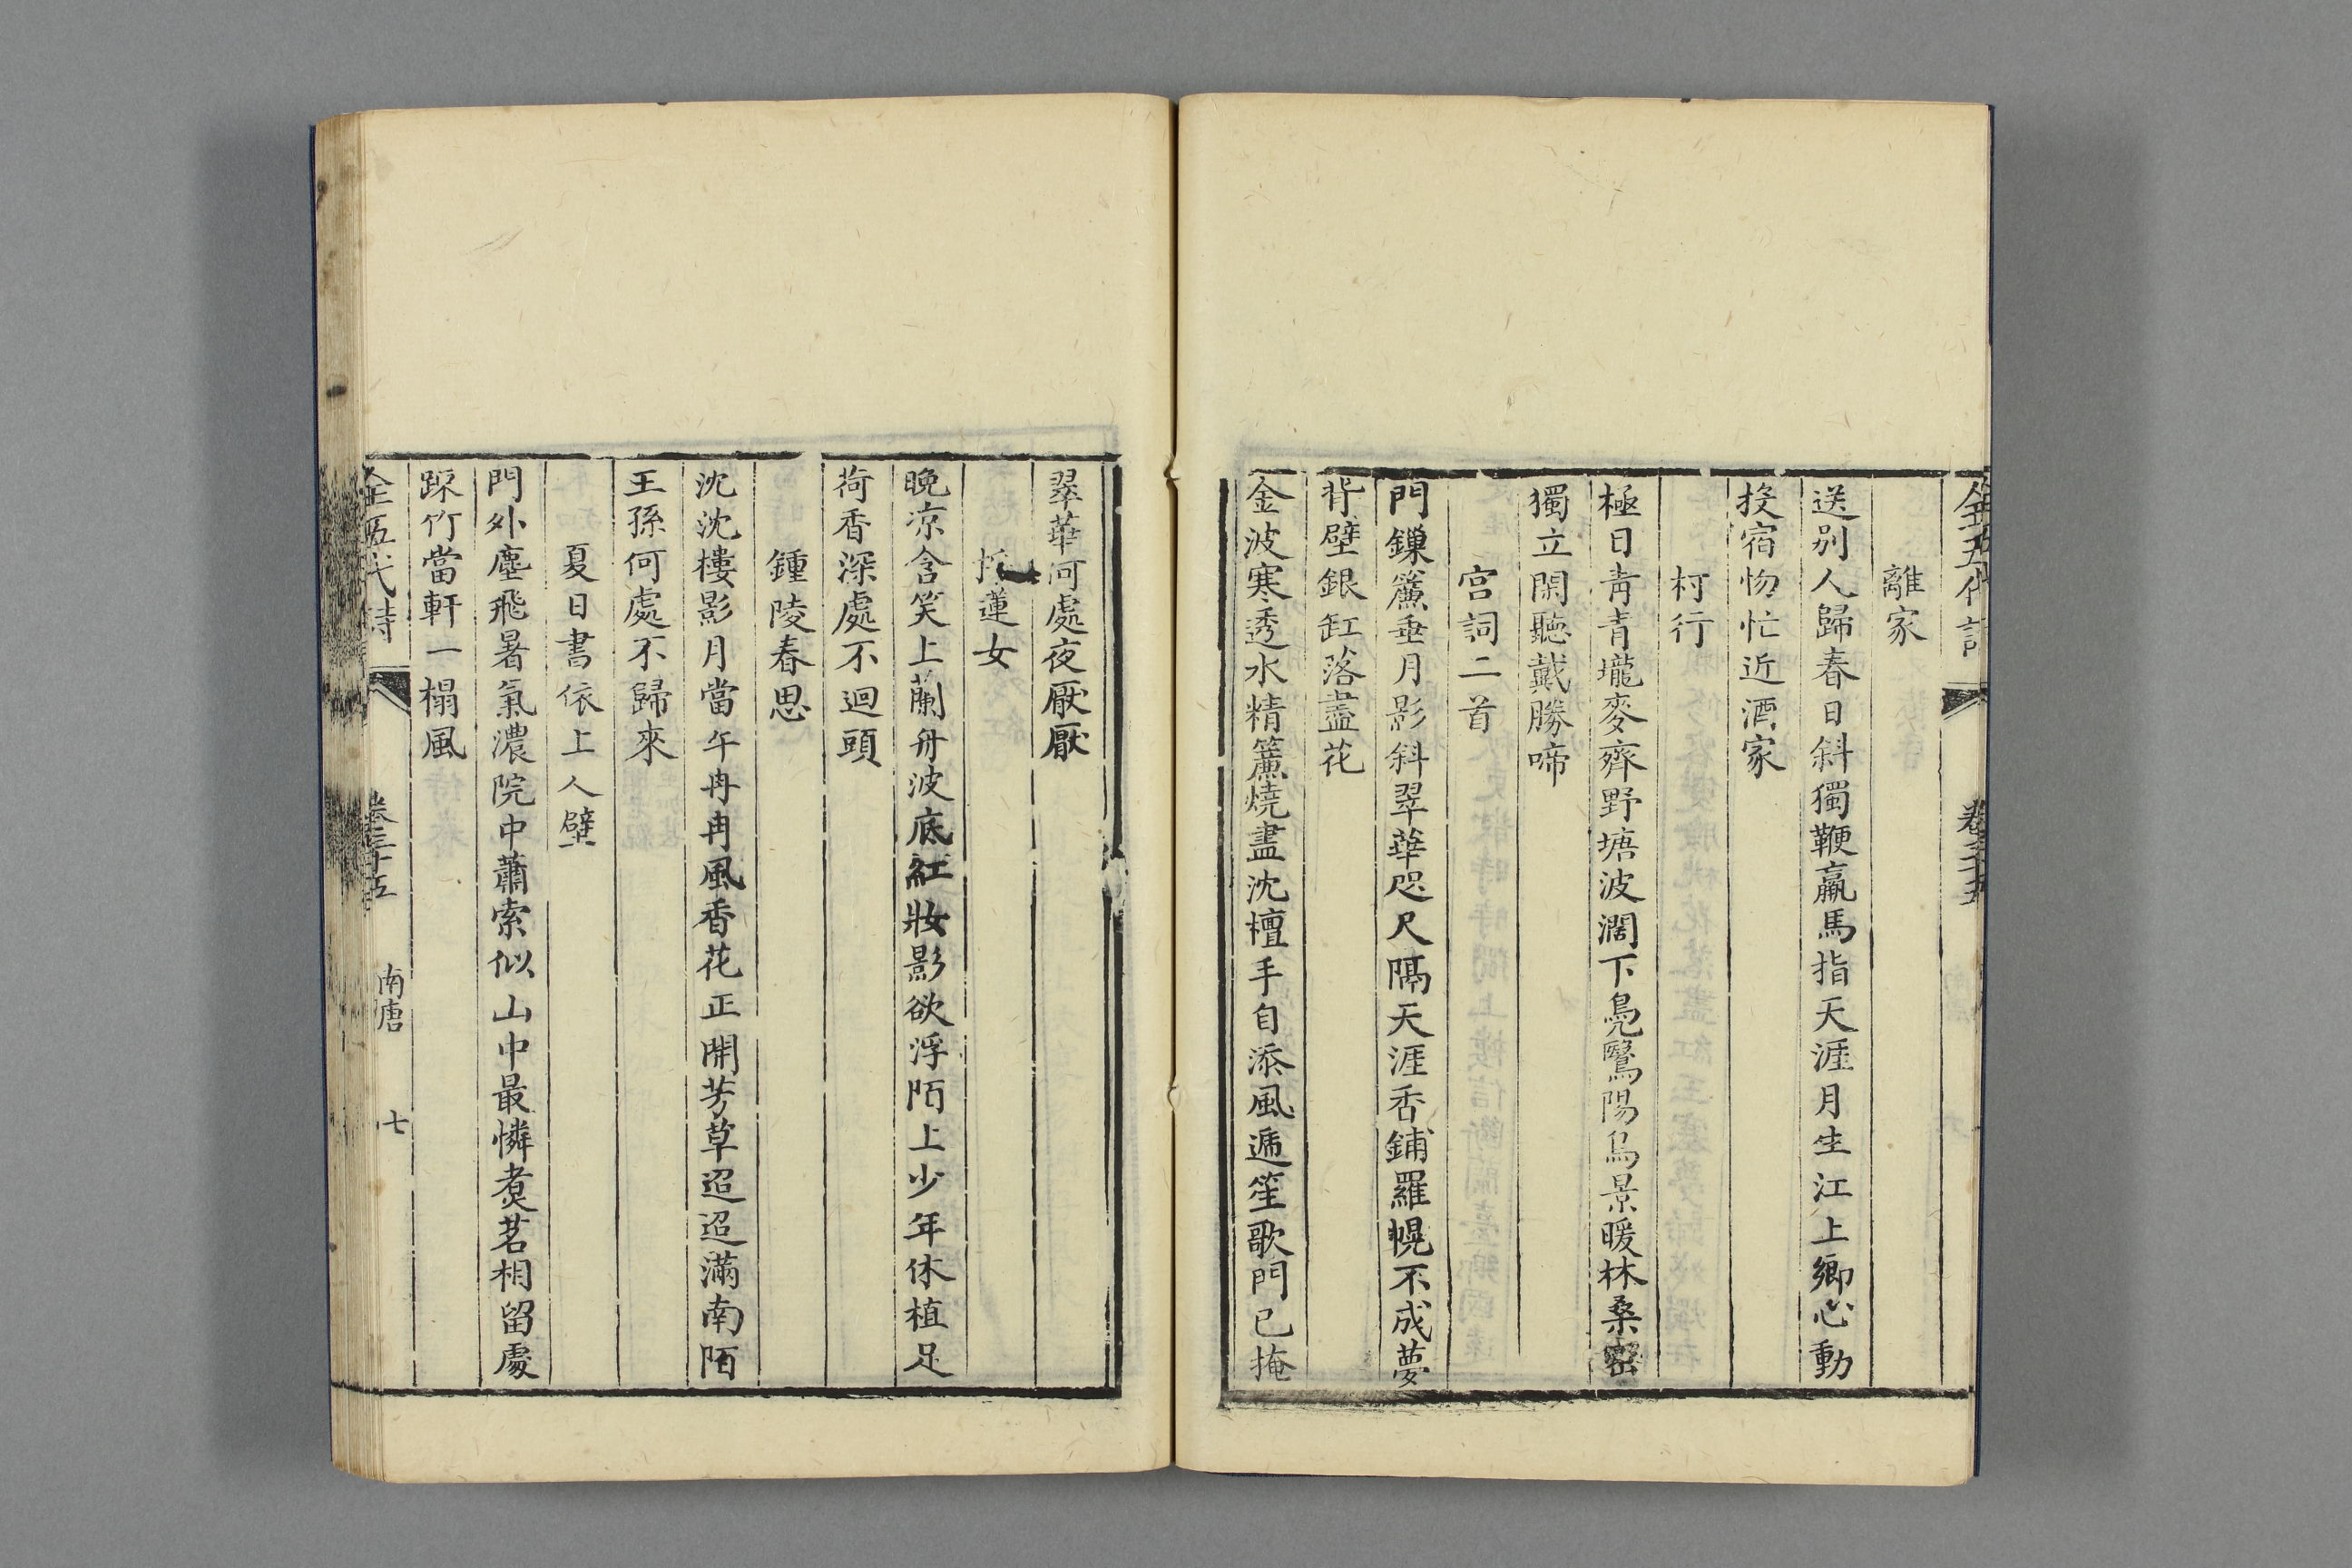 全五代詩
卷三十五
離家
送別人歸春日斜獨鞭羸馬指天涯月生江上鄉心動
投宿怱忙近酒家
村行
極目青青壠麥齊野塘波濶下鳧鷖陽烏景暖林桑密
獨立閑聽戴勝啼
宮詞二首
門鏁簾垂月影斜翠華咫尺隔天涯香鋪羅幌不成夢
背壁銀缸落盡花
金波寒透水精簾燒盡沈檀手自添風遞笙歌門已掩
翠華何處夜厭厭
採蓮女
晚凉含笑上蘭舟波底紅妝影欲浮陌上少年休植足
荷香深處不迴頭
鍾陵春思
沈沈樓影月當午冉冉風香花正開芳草迢迢滿南陌
王孫何處不歸來
夏日書依上人壁
門外塵飛暑氣濃院中蕭索似山中最憐煑茗相留處
踈竹當軒一榻風
全五代詩
卷三十五
南唐
七